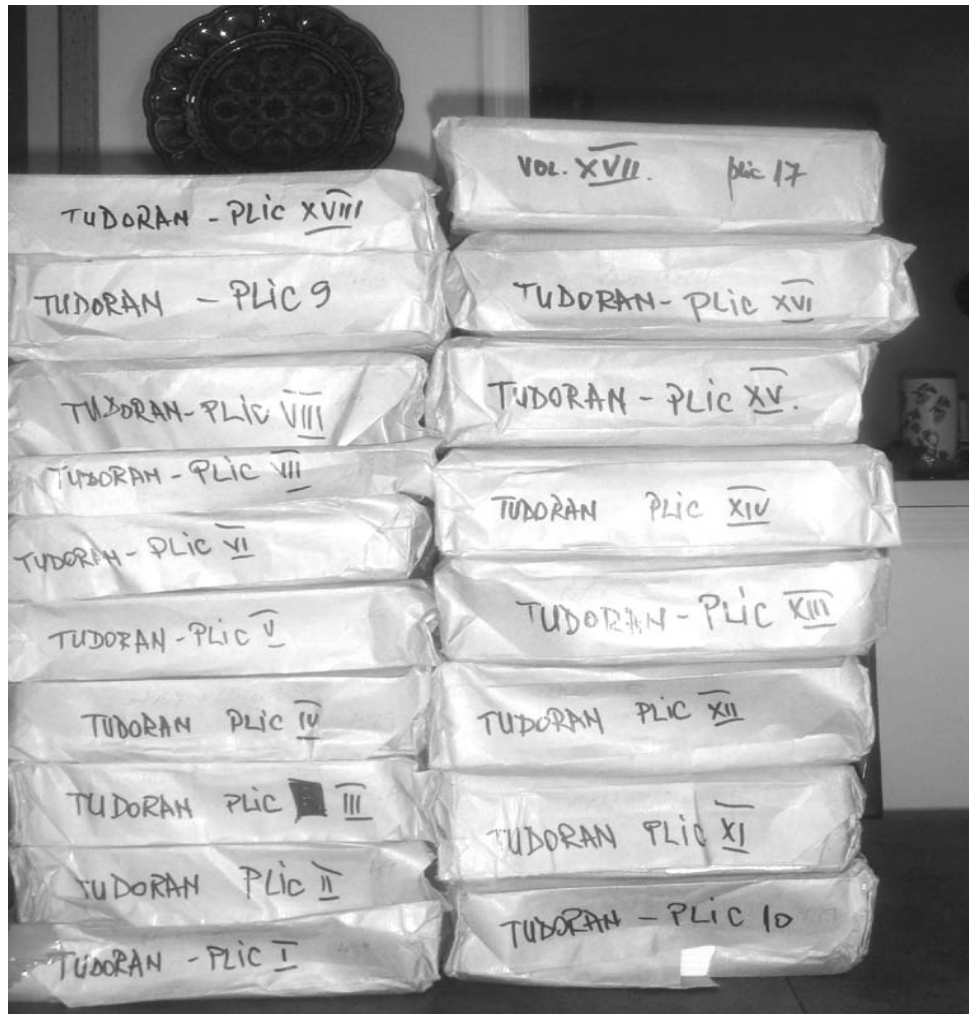 TUDORAN - PLIC XVIII
TUDORAN - PLIC 9
TUDORAN - PLIC VIII
TUDORAN - PLIC VII
TUDORAN - PLIC VI
TUDORAN - PLIC V
TUDORAN PLIC IV
TUDORAN PLIC III
TUDORAN PLIC II
TUDORAN - PLIC I
VOL. XVII. plic 17
TUDORAN - PLIC XVI
TUDORAN - PLIC XV.
TUDORAN PLIC XIV
TUDORAN - PLIC XIII
TUDORAN PLIC XII
TUDORAN PLIC XI
TUDORAN - PLIC 10